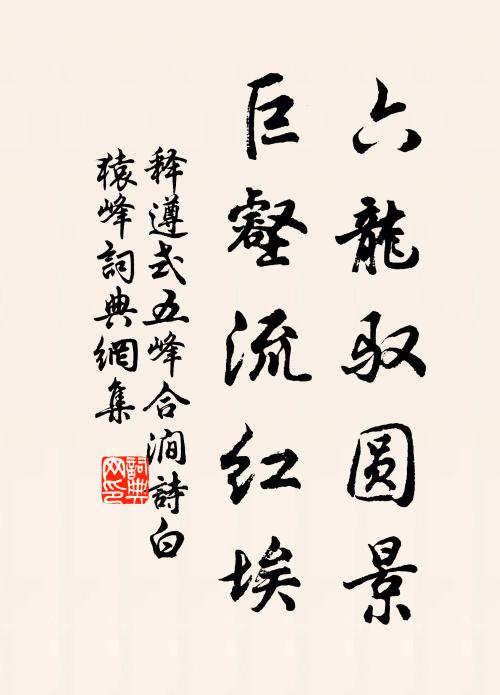 六龍驭圆景
巨壑流红埃
释遵式五峰合澗詩白
猿峰詞典網集
詞典
网印